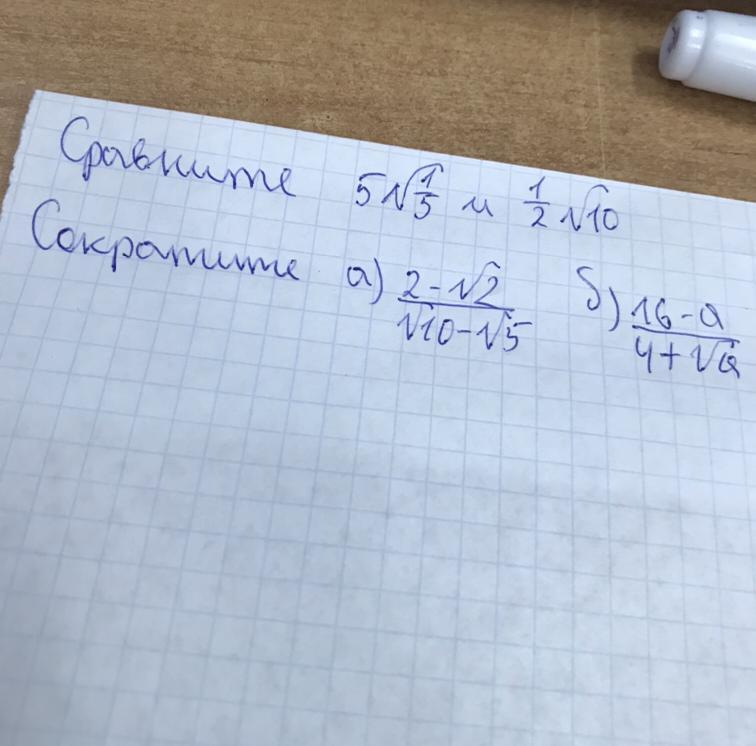 Сравните 5√1/5 и 1/2 √10
Сократите а) (2-√2)/(√10-√5) б) (16-a)/(4+√a)